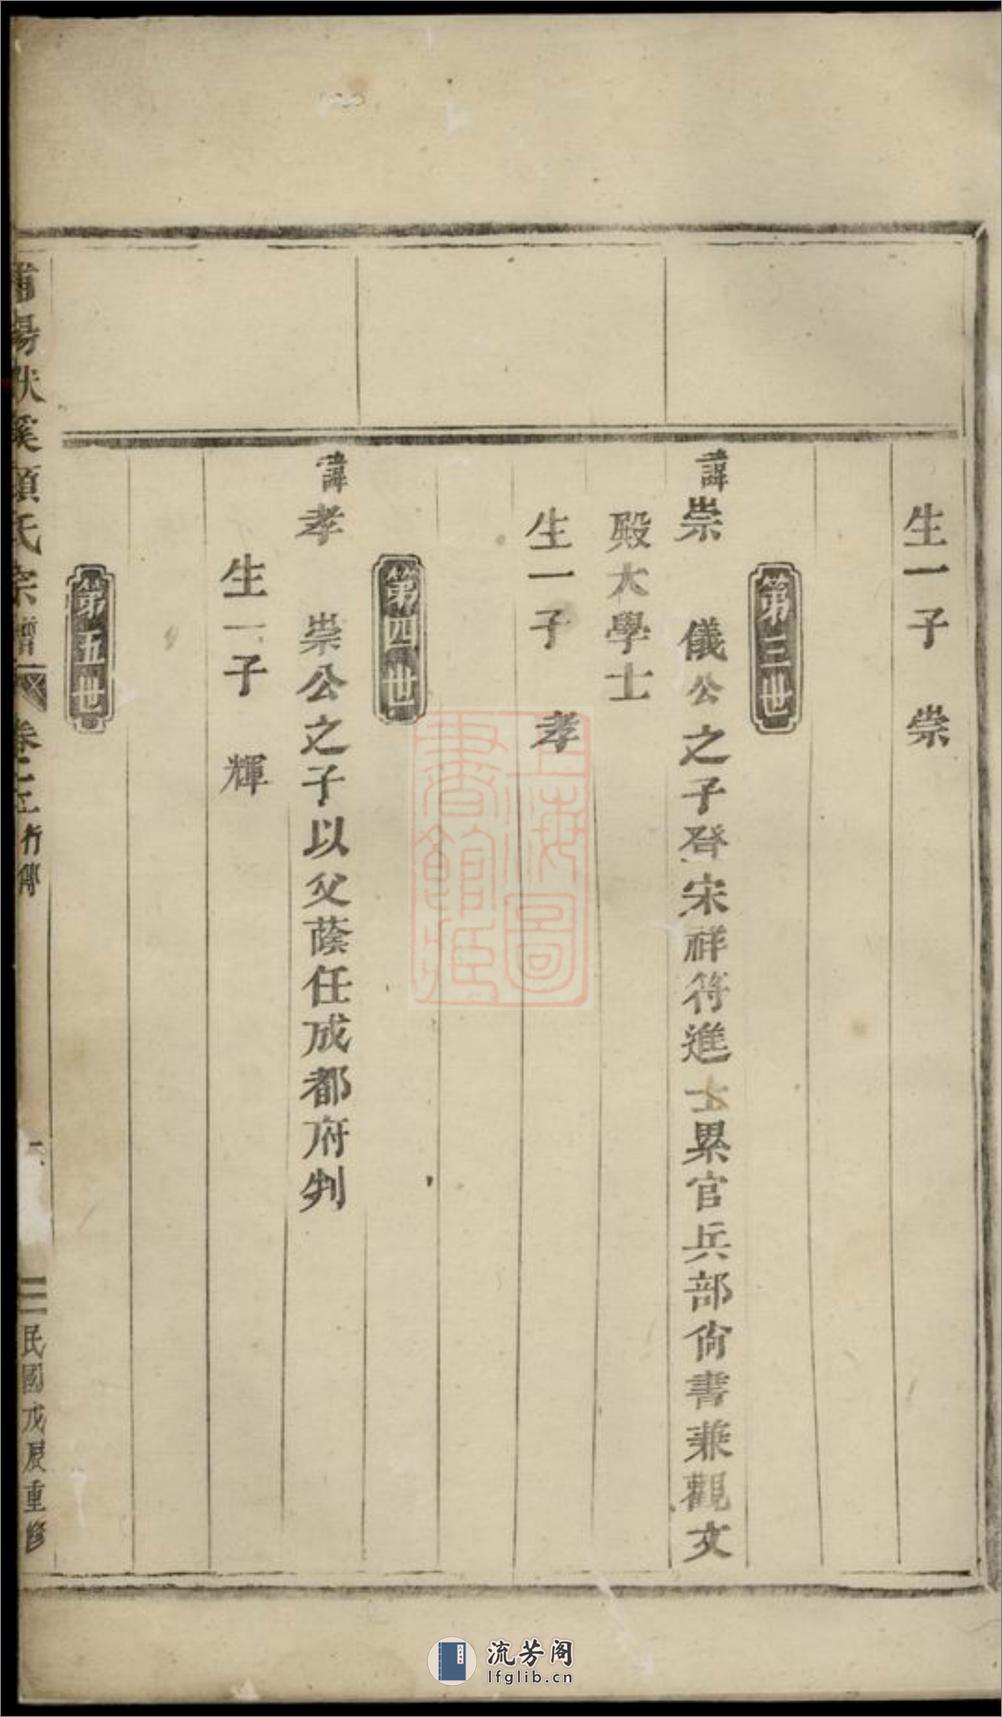 生一子 崇
第三世
諱崇 儀公之子登宋祥符進士累官兵部尙書兼觀文
殿大學士
生一子 孝
第四世
諱孝 崇公之子以父蔭任成都府判
生一子 輝
第五世
氏宗譜 卷之 行傳
三 民國戊辰重修
上海圖
書館藏
流芳阁
lfglib.cn